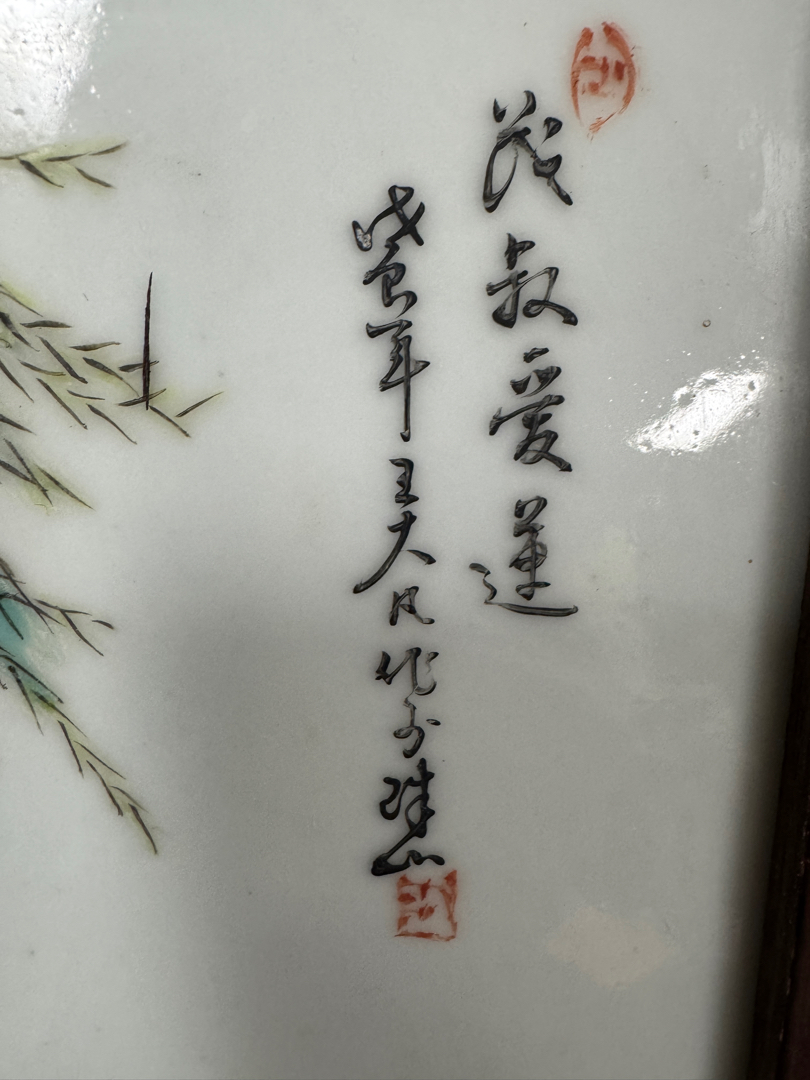 茂叔爱莲
戊寅年王大凡作于珠山